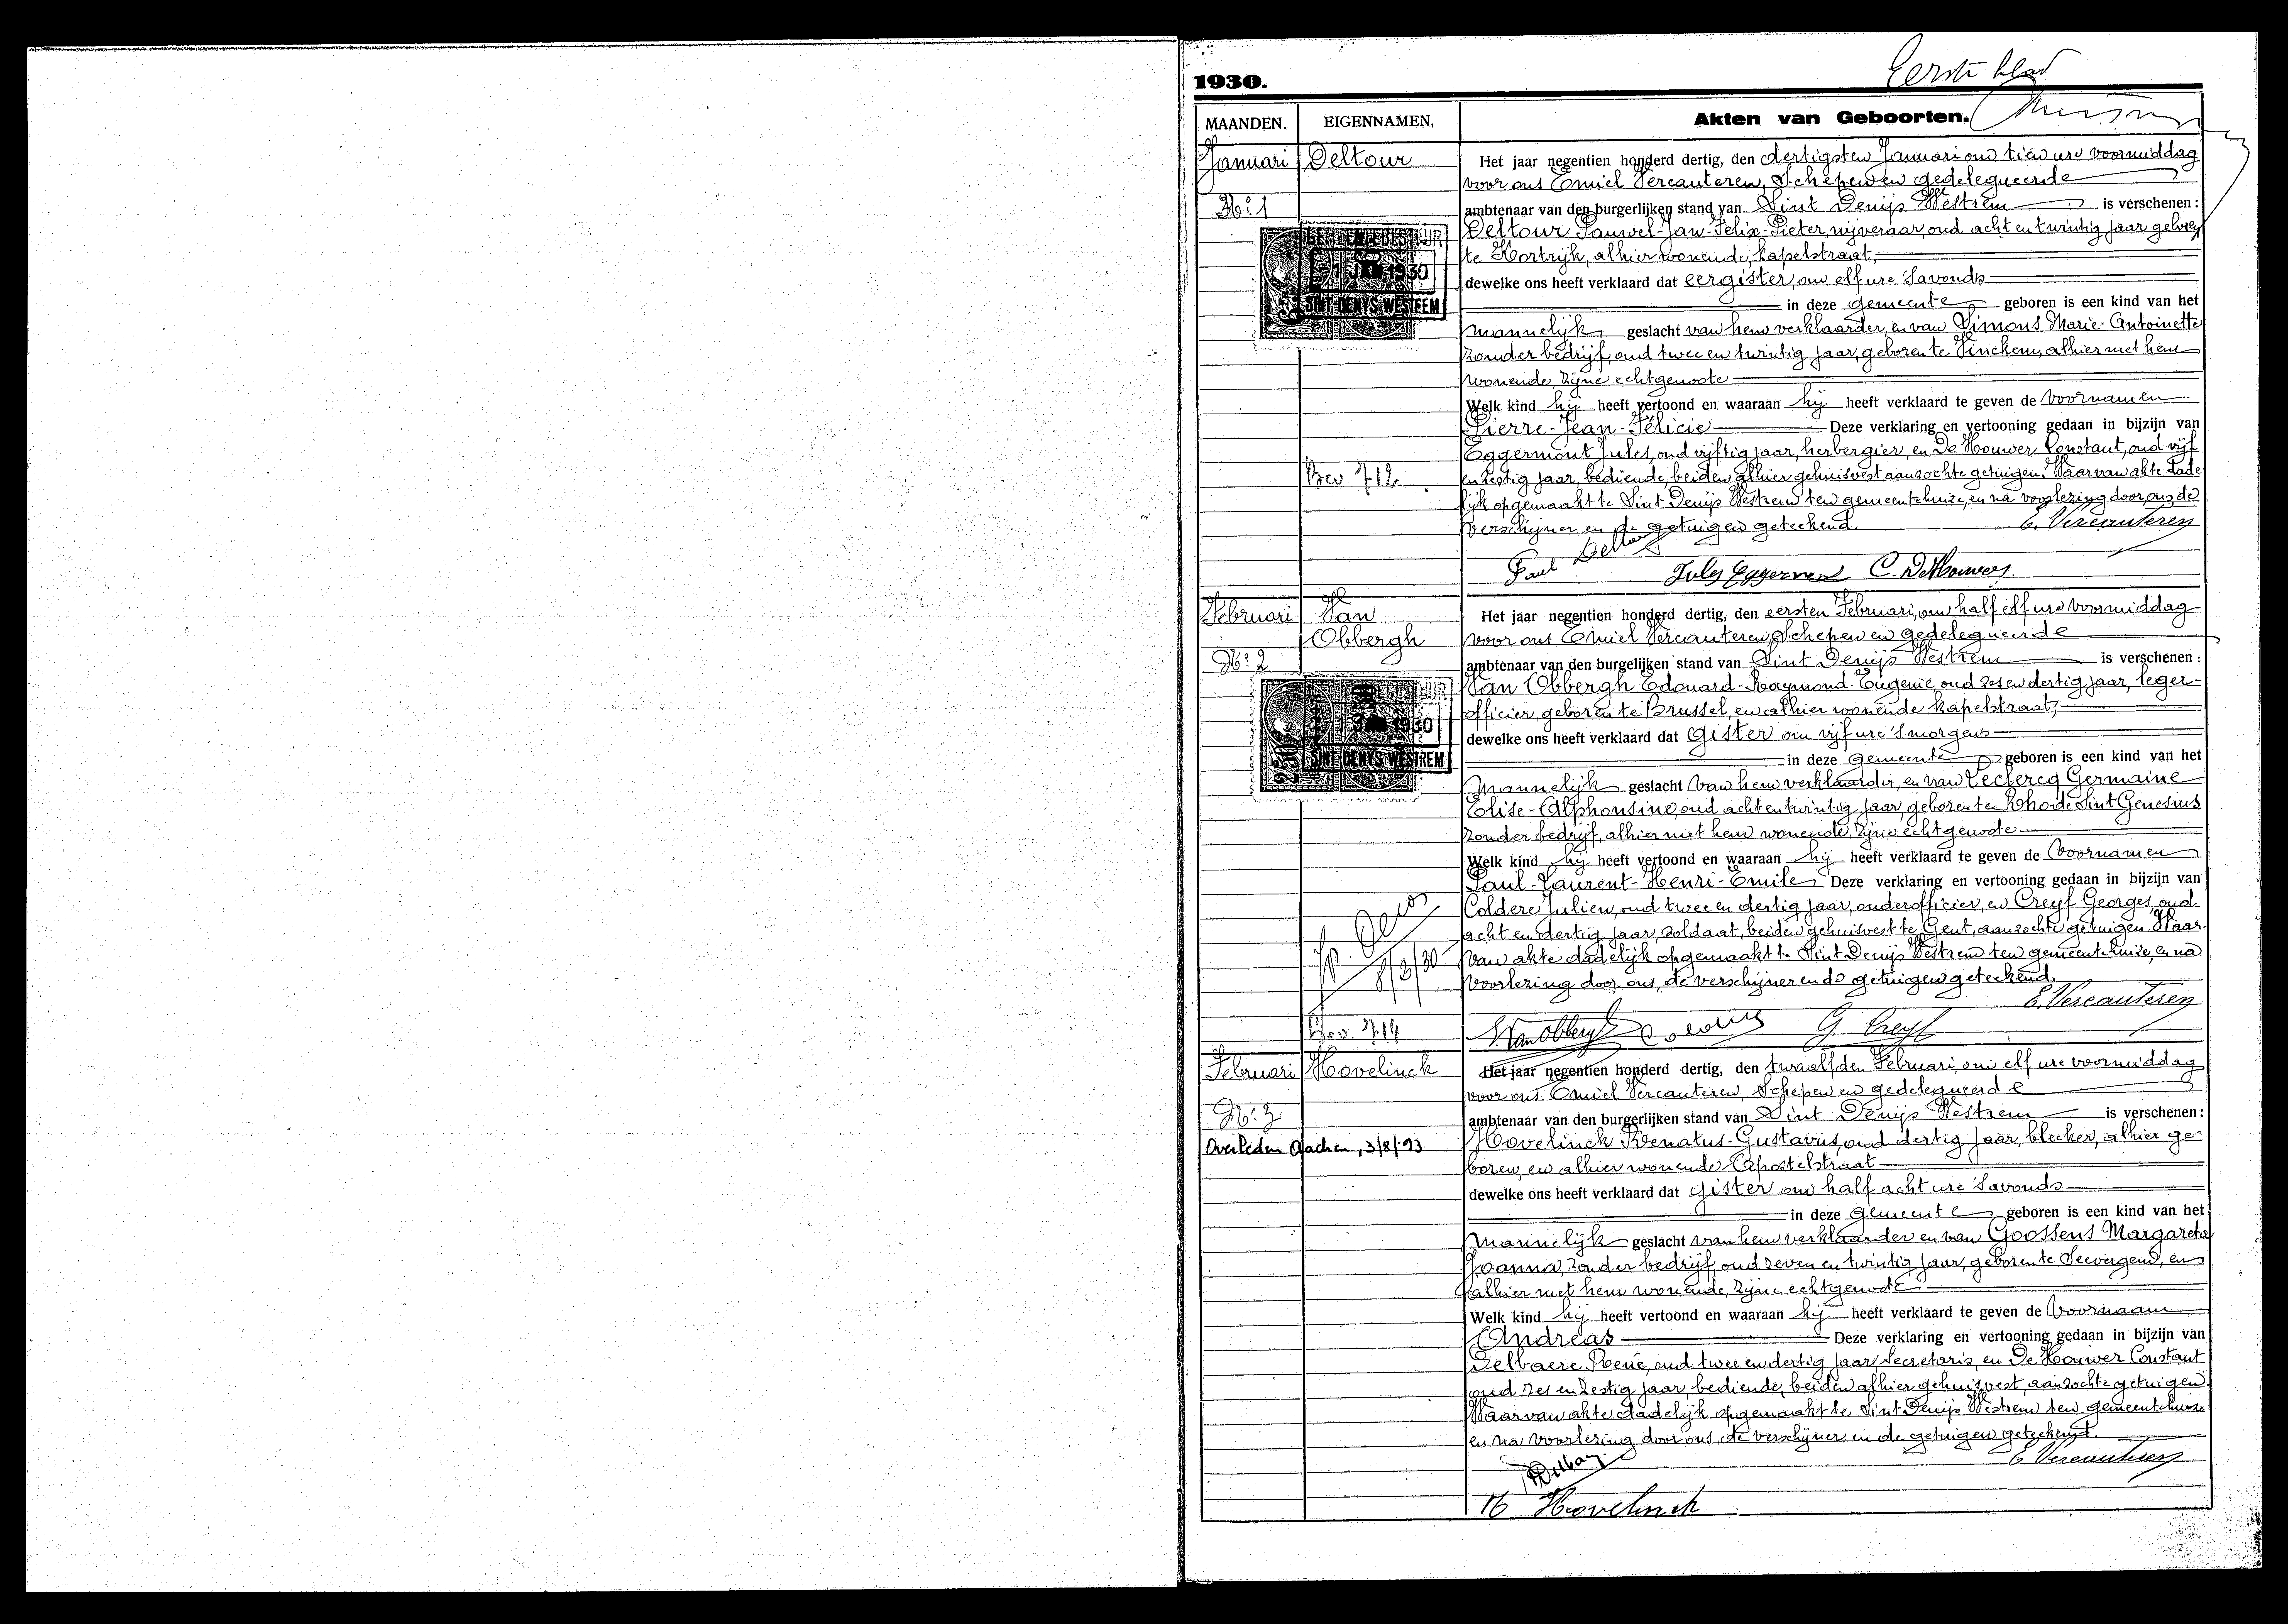 Eerste blad
1930.
MAANDEN. EIGENNAMEN, Akten van Geboorten.
Januari Deltour Het jaar negentien honderd dertig, den dertigsten Januari om tien ure voormiddag
voor ons Emiel Vercauteren, Schepen en gedelegueerde
No: 1 ambtenaar van den burgerlijken stand van Sint Denijs Westrem is verschenen:
Deltour Pauwel-Jan-Felix-Pieter, nijveraar, oud acht en twintig jaar geboren
te Kortrijk, alhier wonende, kapelstraat,
1 JAN 1930
dewelke ons heeft verklaard dat eergister, om elf ure 's avonds
SINT-DENYS-WESTREM
in deze gemeente geboren is een kind van het
mannelijk geslacht van hem verklaarder, en van Simons Marie-Antoinette
zonder bedrijf, oud twee en twintig jaar, geboren te Vinckem, alhier met hem
wonende, zijne echtgenoote
Welk kind hij heeft vertoond en waaraan hij heeft verklaard te geven de voornamen
Pierre-Jean-Félicie Deze verklaring en vertooning gedaan in bijzijn van
Eggermont Jules, oud vijftig jaar, herbergier, en De Houwer Constant, oud vijf
Bev. 712 en zestig jaar, bediende, beiden alhier gehuisvest aanzochte getuigen. Waarvan akte dade
lijk opgemaakt te Sint Denijs Westrem ten gemeentehuize, en na voorlezing door ons, de
verschijner en de getuigen geteekend. E. Vercauteren
Paul Deltour Jules Eggermont C. De Houwer
Februari Van Het jaar negentien honderd dertig, den eersten Februari, om half elf ure voormiddag
Obbergh voor ons Emiel Vercauteren, Schepen en gedelegueerde
No: 2 ambtenaar van den burgelijken stand van Sint Denijs Westrem is verschenen:
Van Obbergh Edouard-Raymond-Eugenie, oud zes en dertig jaar, leger-
officier, geboren te Brussel, en alhier wonende kapelstraat,
1930
dewelke ons heeft verklaard dat gister om vijf ure 's morgens
SINT-DENYS-WESTREM
in deze gemeente geboren is een kind van het
mannelijk geslacht van hem verklaarder, en van Leclercq Germaine
Elise-Alphonsine, oud acht en twintig jaar, geboren te Rhode Sint Genesius
zonder bedrijf, alhier met hem wonende, zijne echtgenoote
Welk kind hij heeft vertoond en waaraan hij heeft verklaard te geven de voornamen
Paul-Laurent-Henri-Emile Deze verklaring en vertooning gedaan in bijzijn van
Coldere Julien, oud twee en dertig jaar, onderofficier, en Creyf Georges, oud
acht en dertig jaar, soldaat, beiden gehuisvest te Gent, aanzochte getuigen. Waar-
8/3/30 van akte dadelijk opgemaakt te Sint Denijs Westrem ten gemeentehuize, en na
voorlezing door ons, de verschijner en de getuigen geteekend.
E. Vercauteren
Bev. 714 VanObbergh G. Creyf
Februari Hovelinck Het jaar negentien honderd dertig, den twaalfden Februari, om elf ure voormiddag
voor ons Emiel Vercauteren, Schepen en gedelegueerde
No: 3 ambtenaar van den burgerlijken stand van Sint Denijs Westrem is verschenen:
Overleden Aachen, 3/8/'93 Hovelinck Renatus-Gustavus, oud dertig jaar, bleeker, alhier ge-
boren, en alhier wonende Apostelstraat
dewelke ons heeft verklaard dat gister om half acht ure 's avonds
in deze gemeente geboren is een kind van het
mannelijk geslacht van hem verklaarder en van Goossens Margaretha
Joanna, zonder bedrijf, oud zeven en twintig jaar, geboren te Seevergem, en
alhier met hem wonende, zijne echtgenoote
Welk kind hij heeft vertoond en waaraan hij heeft verklaard te geven de voornaam
Andreas Deze verklaring en vertooning gedaan in bijzijn van
Delbaere René, oud twee en dertig jaar, Secretaris, en De Houwer Constant
oud zes en zestig jaar, bediende, beiden alhier gehuisvest, aanzochte getuigen.
Waarvan akte dadelijk opgemaakt te Sint Denijs Westrem ten gemeentehuize
en na voorlezing door ons, de verschijner en de getuigen geteekend.
E. Vercauteren
Hovelinck